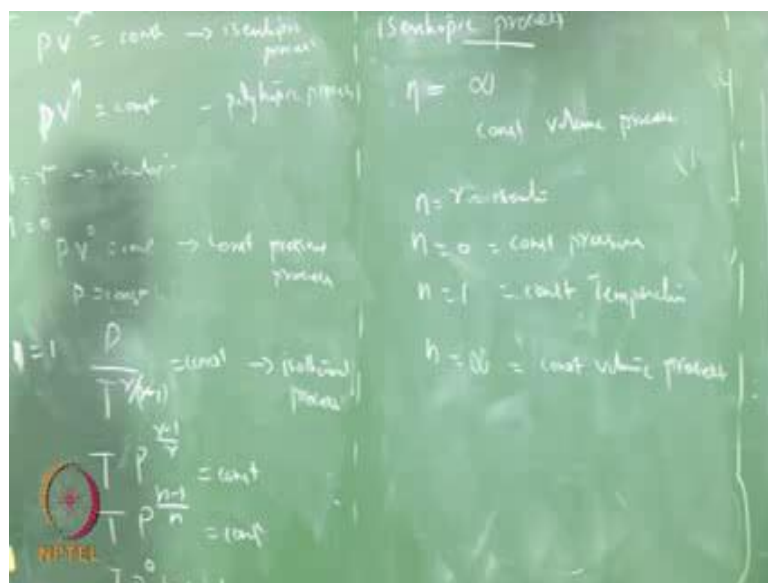 PV^γ = const → isentropic process
PV^n = const - polytropic process
n = γ →
n = 0
PV^0 = const → const pressure process
P = const
n = 1 P / T^γ/(γ-1) = const → isothermal process
T P^(γ-1)/γ = const
T P^(n-1)/n = const
NPTEL
isentropic process
η = ∞
const volume process
n = γ =
n = 0 = const pressure
n = 1 = const Temperature
n = ∞ = const volume process